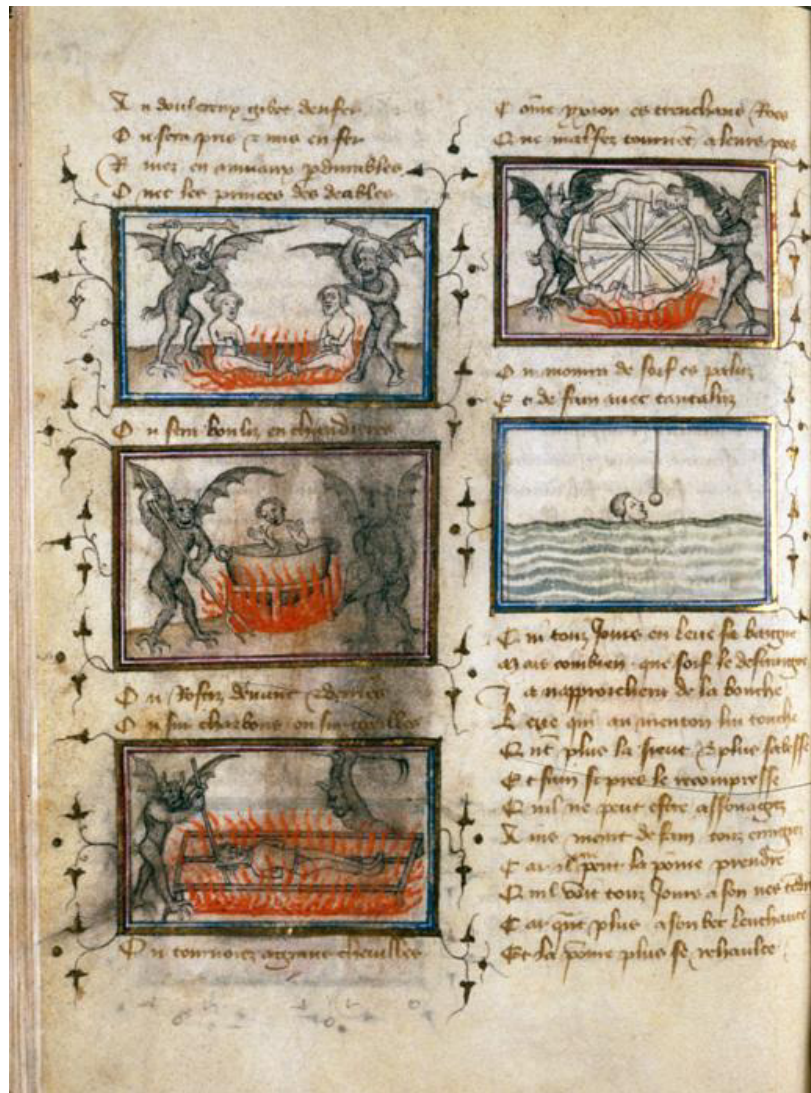 A u doulereux gibet denfer
O u sera pris & mis en fer
R ivez en anniaux pdurables
D evant les princes des deables
O u sera boulu en chaudieres
O u rostiz devant & derrieres
O u sur charbons ou sur greilles
O u tournoiez a grans chevilles
C ome yxion es trenchans Roes
Que maufez tournent a leurs poes
O u mourra de soif es paluz
E t de fain avec tantaluz
Qui touz Jours en leue se baigne
M ais combien que soif le destraigne
J a napprochera de la bouche
L eaue qui au menton lui touche
Quant plus la sieut & plus sabesse
E t fain si pres le recompresse
Quil ne peut estre assouagez
A ins meurt de fain touz enragez
C ar il ne peut la pome prendre
Quil voit touz Jours a son nes tendre
C ar quant plus a son bec lenchauce
Et la pome plus se rehauce